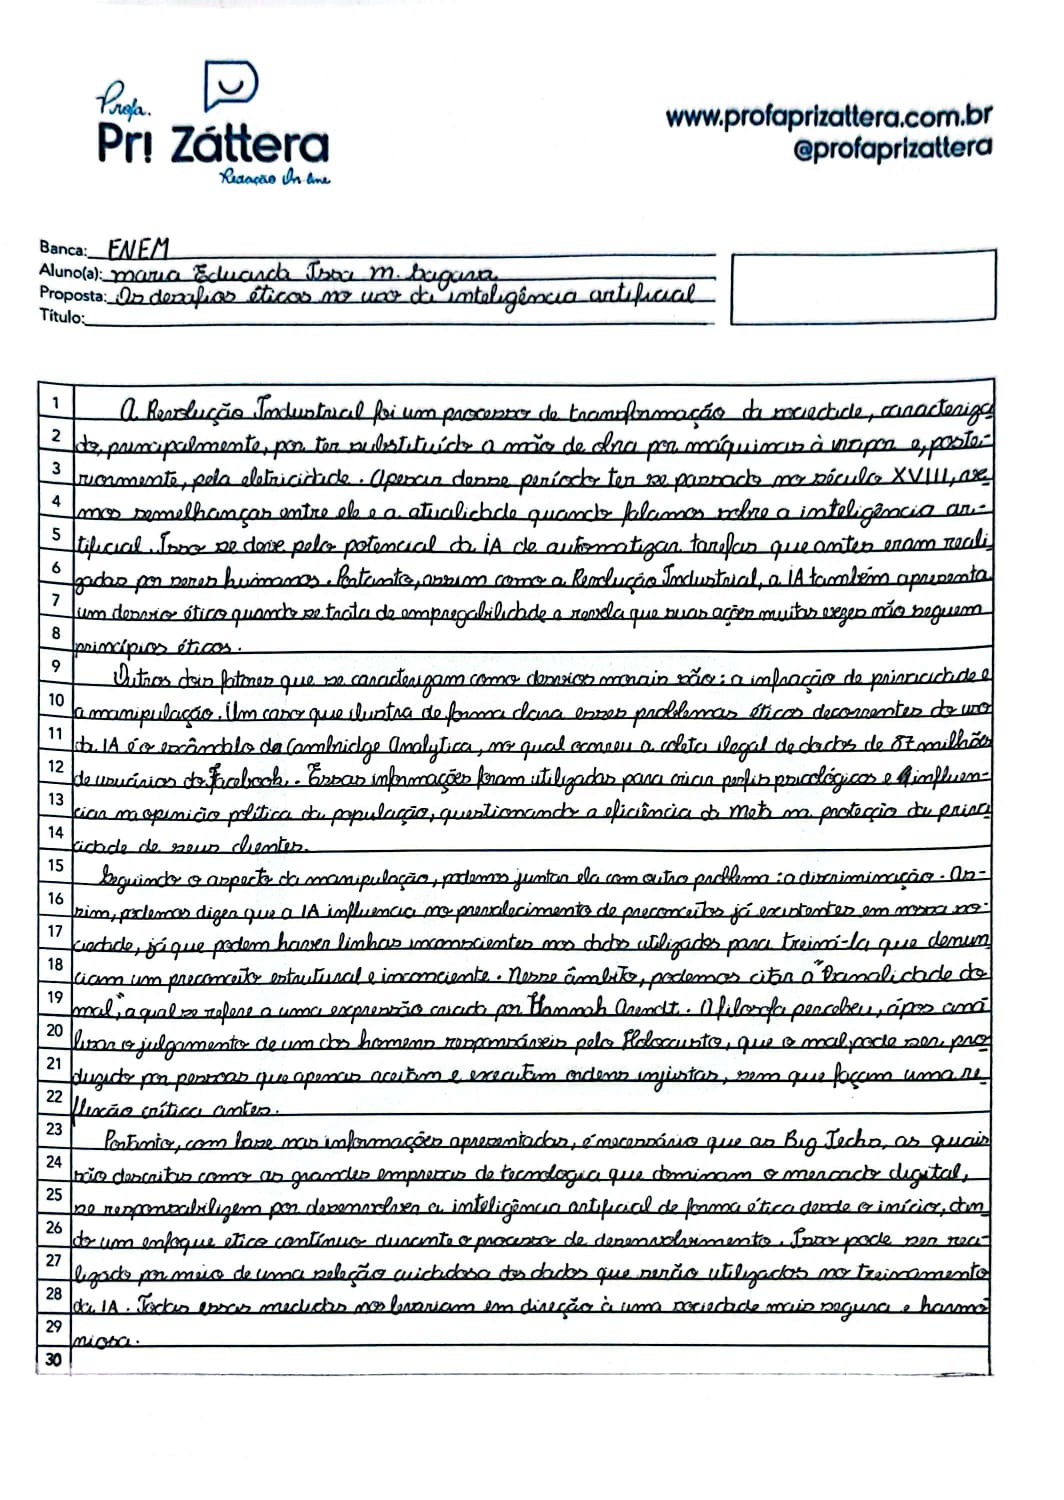 Profa.
Pr! Záttera
Redação On-line
www.profaprizattera.com.br
@profaprizattera
Banca: ENEM
Aluno(a): Maria Eduarda Issa M.
Proposta: Os desafios éticos no uso da inteligência artificial
Título:
1 A Revolução Industrial foi um processo de transformação da sociedade, caracteriza
2 do, principalmente, por ter substituído a mão de obra por máquinas à vapor e, poste-
3 riormente, pela eletricidade. Apesar desse período ter se passado no século XVIII,
4 mos semelhanças entre ele e a atualidade quando falamos sobre a inteligência ar-
5 tificial. Isso se deve pelo potencial da IA de automatizar tarefas que antes eram reali
6 zadas por seres humanos. Portanto, assim como a Revolução Industrial, a IA também apresenta
7 um desvio ético quando se trata de empregabilidade e revela que suas ações muitas vezes não seguem
8 princípios éticos.
9 Outros dois fatores que se caracterizam como desvios morais são: a infração de privacidade e
10 a manipulação. Um caso que ilustra de forma clara esses problemas éticos decorrentes do uso
11 da IA é o escândalo da Cambridge Analytica, no qual ocorreu a coleta ilegal de dados de 87 milhões
12 de usuários do Facebook. Essas informações foram utilizadas para criar perfis psicológicos e influen-
13 ciar na opinião política da população, questionando a eficiência da Meta na proteção da priva
14 cidade de seus clientes.
15 Seguindo o aspecto da manipulação, podemos juntar ela com outro problema: a discriminação. As-
16 sim, podemos dizer que a IA influencia no prevalecimento de preconceitos já existentes em nossa so-
17 ciedade, já que podem haver linhas inconscientes nos dados utilizados para treiná-la que denun
18 ciam um preconceito estrutural e inconciente. Nesse âmbito, podemos citar a "Banalidade do
19 mal", a qual se refere a uma expressão criada por Hannah Arendt. A filósofa percebeu, após ana
20 lisar o julgamento de um dos homens responsáveis pelo Holocausto, que o mal pode ser pro
21 duzido por pessoas que apenas aceitam e executam ordens injustas, sem que façam uma re
22 flexão crítica antes.
23 Portanto, com base nas informações apresentadas, é necessário que as Big Techs, as quais
24 são descritas como as grandes empresas de tecnologia que dominam o mercado digital,
25 se responsabilizem por desenvolver a inteligência artificial de forma ética desde o início, dan
26 do um enfoque etico contínuo durante o processo de desenvolvimento. Isso pode ser rea-
27 lizado por meio de uma seleção cuidadosa dos dados que serão utilizados no treinamento
28 da IA. Todas essas medidas nos levariam em direção à uma sociedade mais segura e harmo
29 niosa.
30